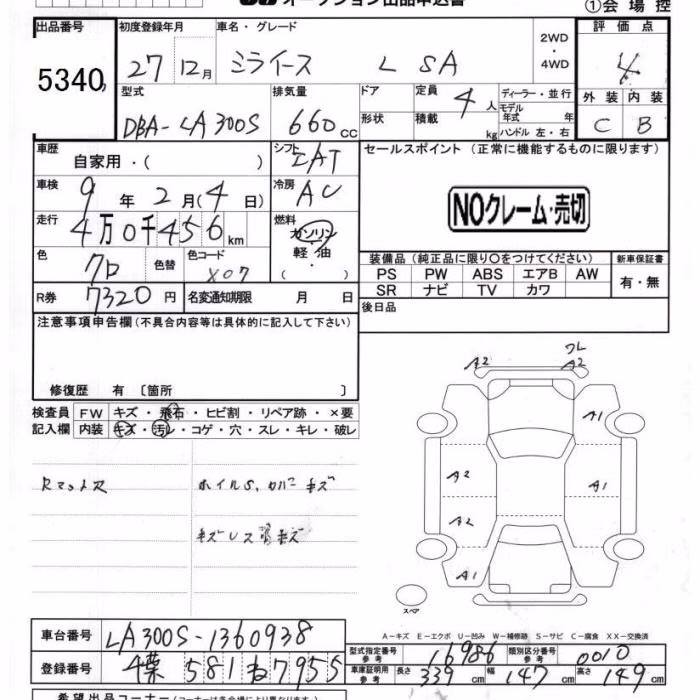 オークション出品申込書
①会場控
出品番号 初度登録年月 車名・グレード 2WD・4WD 評価点
5340 27 12月 ミライース L SA 4
型式 排気量 ドア 定員 4人 ディーラー・並行
モデル年式 年
外装 内装
DBA-LA300S 660cc 形状 積載 kg ハンドル 左・右 C B
車歴 自家用・( ) シフト IAT セールスポイント (正常に機能するものに限ります)
車検 9年2月(4日) 冷房 AC
NOクレーム・売切
走行 4万0千456km 燃料 ガソリン・軽油・( )
装備品 (純正品に限り○をつけてください) 新車保証書
色 クロ 色替 色コード X07
PS PW ABS エアB AW 有・無
SR ナビ TV カワ
R券 7320円 名変通知期限 月 日
後日品
注意事項申告欄(不具合内容等は具体的に記入して下さい)
修復歴 有 〔箇所 〕
検査員記入欄 FW キズ・飛石・ヒビ割・リペア跡・×要
内装 キズ・汚レ・コゲ・穴・スレ・キレ・破レ
A2 A2
A1
A2 A1
A2
A1
Rマット欠 ホイルS.カバーキズ
スペア
A-キズ E-エクボ U-凹み W-補修跡 S-サビ C-腐食 XX-交換済
車台番号 LA300S-1360938
型式指定番号 参考 16986 類別区分番号 参考 0010
登録番号 581 ね 7955
車庫証明用 参考 長さ 339 cm 幅 147 cm 高さ 149 cm
希望出品コーナー